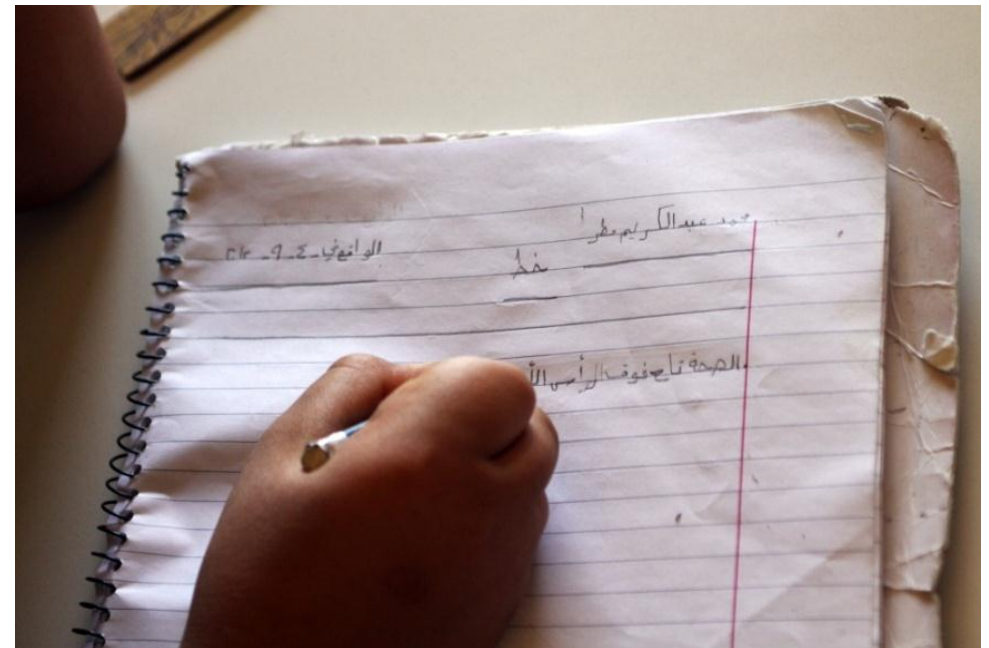 محمد عبدالكريم مطر
الوافق في ٤-٩-
خط
الصحة تاج فوق الرأس الأ